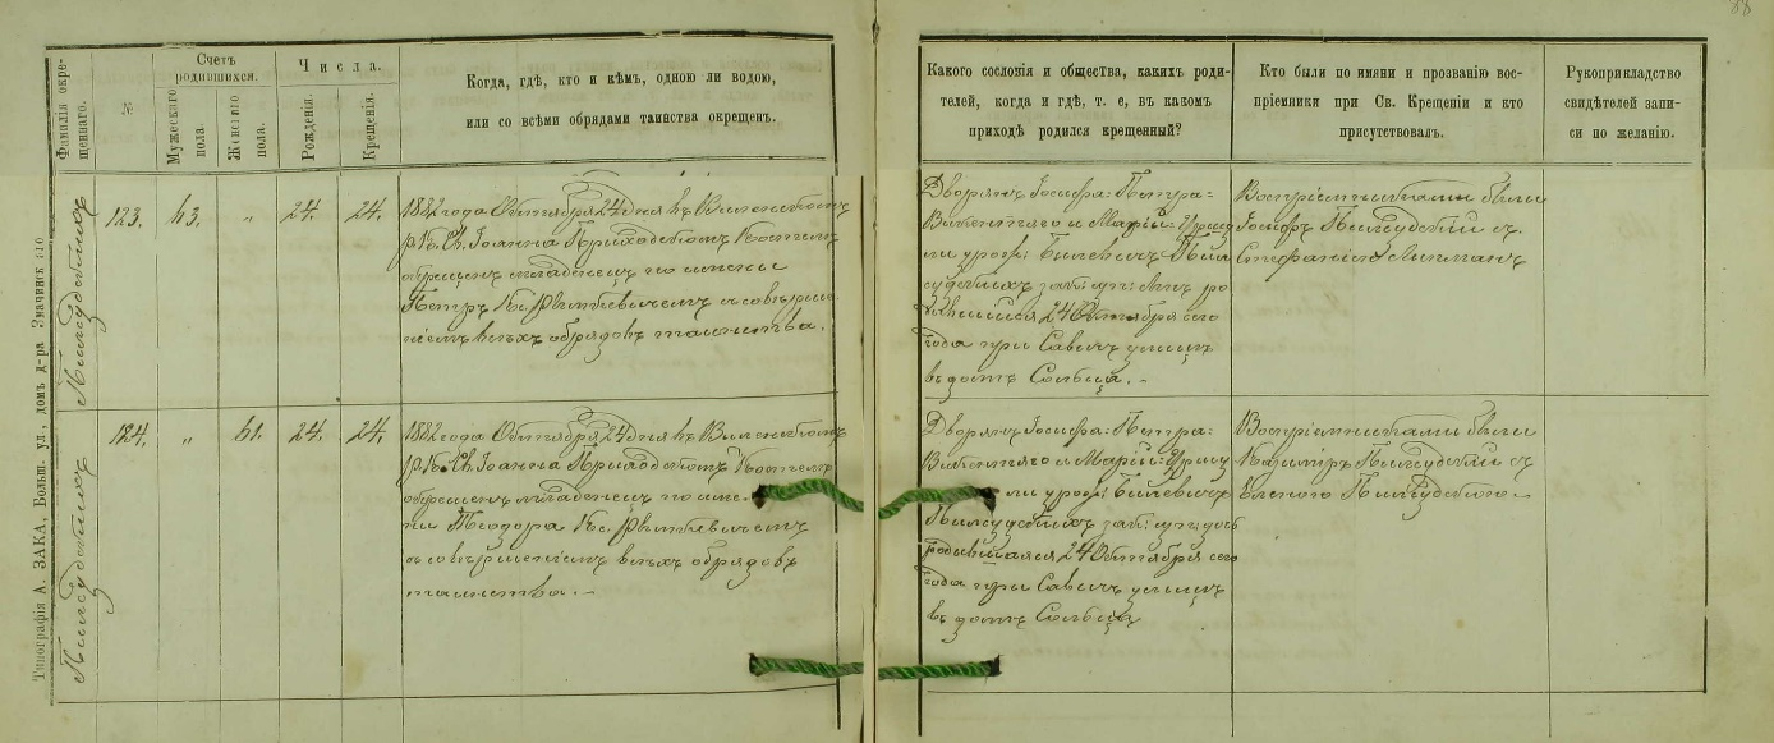 88
Фамилія окре-
щеннаго.
№
Счетъ
родившихся.
Мужескаго
пола.
Женскаго
пола.
Числа.
Рожденія.
Крещенія.
Когда, гдѣ, кто и кѣмъ, одною ли водою,
или со всѣми обрядами таинства окрещенъ.
Какого сословія и общества, какихъ роди-
телей, когда и гдѣ, т. е, въ какомъ
приходѣ родился крещенный?
Кто были по имяни и прозванію вос-
пріемники при Св. Крещеніи и кто
присутствовалъ.
Рукоприкладство
свидѣтелей запи-
си по желанію.
Типографія А. ЗАКА, Больш. ул., домъ д-ра Значинскаго
Пилсудскихъ
123.
63.
„
24.
24.
1882 года Октября 24 дня въ Виленскомъ
р. к. Св. Іоанна Приходскомъ Костелѣ
окрещенъ младенецъ по имени
Петръ Кс. съ соверше-
ніемъ всѣхъ обрядовъ таинства.
Дворянъ Іосифа-Петра-
Викентяго и Маріи-Уршу
ли урож: Билевичъ Пил
судскихъ зак: суп: сынъ ро
дившійся 24 Октября сего
года при Савичъ улицѣ
въ домѣ
Воспріемниками были
Іосифъ Пилсудскій съ
Стефаніею Липманъ
Пилсудскихъ
124.
„
61.
24.
24.
1882 года Октября 24 дня въ Виленскомъ
р. к. Св. Іоанна Приходскомъ Костелѣ
окрещенъ младенецъ по име-
ни Теодора Кс.
съ совершеніемъ всѣхъ обрядовъ
таинства. -
Дворянъ Іосифа-Петра-
Викентяго и Маріи-Уршу
ли урож: Билевичъ
Пилсудскихъ зак: суп: дочь
родившаяся 24 Октября сего
года при Савичъ улицѣ
въ домѣ
Воспріемниками были
Казиміръ Пилсудскій съ
Еленою Пилсудскою -